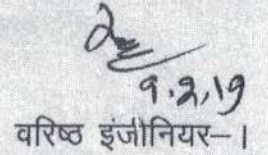 9.2.19
वरिष्ठ इंजीनियर–।